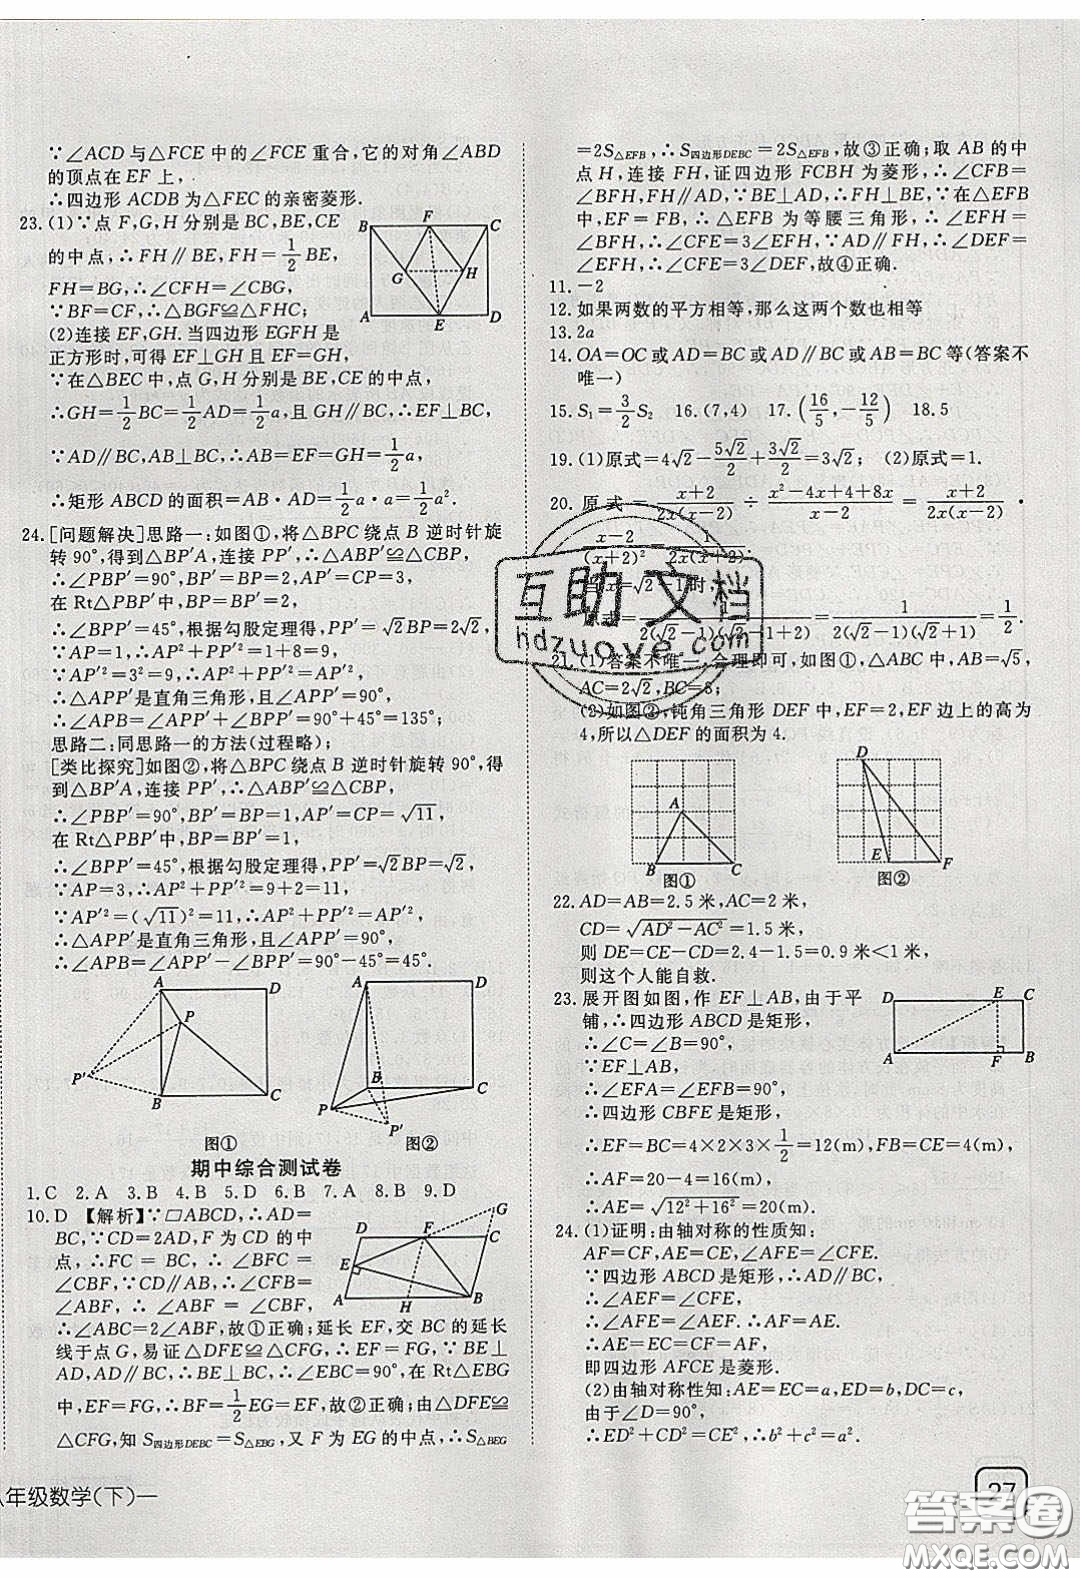 ∵∠ACD与△FCE中的∠FCE重合,它的对角∠ABD
的顶点在EF上,
∴四边形ACDB为△FEC的亲密菱形.
23.(1)∵点F,G,H分别是BC,BE,CE
的中点,∴FH∥BE,FH=1/2BE,
FH=BG,∴∠CFH=∠CBG,
∵BF=CF,∴△BGF≌△FHC;
(2)连接EF,GH.当四边形EGFH是
正方形时,可得EF⊥GH且EF=GH,
∵在△BEC中,点G,H分别是BE,CE的中点,
∴GH=1/2BC=1/2AD=1/2a,且GH∥BC,∴EF⊥BC,
∵AD∥BC,AB⊥BC,∴AB=EF=GH=1/2a,
∴矩形ABCD的面积=AB·AD=1/2a·a=1/2a².
B F C
G H
A E D
24.[问题解决]思路一:如图①,将△BPC绕点B逆时针旋
转90°,得到△BP′A,连接PP′,∴△ABP′≌△CBP,
∴∠PBP′=90°,BP′=BP=2,AP′=CP=3,
在Rt△PBP′中,BP=BP′=2,
∴∠BPP′=45°,根据勾股定理得,PP′=√2BP=2√2,
∵AP=1,∴AP²+PP′²=1+8=9,
∵AP′²=3²=9,∴AP²+PP′²=AP′²,
∴△APP′是直角三角形,且∠APP′=90°,
∴∠APB=∠APP′+∠BPP′=90°+45°=135°;
思路二:同思路一的方法(过程略);
[类比探究]如图②,将△BPC绕点B逆时针旋转90°,得
到△BP′A,连接PP′,∴△ABP′≌△CBP,
∴∠PBP′=90°,BP′=BP=1,AP′=CP=√11,
在Rt△PBP′中,BP=BP′=1,
∴∠BPP′=45°,根据勾股定理得,PP′=√2BP=√2,
∵AP=3,∴AP²+PP′²=9+2=11,
∵AP′²=(√11)²=11,∴AP²+PP′²=AP′²,
∴△APP′是直角三角形,且∠APP′=90°,
∴∠APB=∠APP′-∠BPP′=90°-45°=45°.
A D P P′ B C
图①
A D B C P P′
图②
期中综合测试卷
1.C 2.A 3.B 4.B 5.D 6.B 7.A 8.B 9.D
10.D 【解析】∵▱ABCD,∴AD=
BC,∵CD=2AD,F为CD的中
点,∴FC=BC,∴∠BFC=
∠CBF,∵CD∥AB,∴∠CFB=
∠ABF,∴∠ABF=∠CBF,
∴∠ABC=2∠ABF,故①正确;延长EF,交BC的延长
线于点G,易证△DFE≌△CFG,∴EF=FG,∵BE⊥
AD,AD∥BC,∴BE⊥BC,∴∠EBC=90°,在Rt△EBG
中,EF=FG,∴BF=1/2EG=EF,故②正确;由△DFE≌
△CFG,知S四边形DEBC=S△EBG,又F为EG的中点,∴S△BEG
G
D F C
E
A H B
=2S△EFB,∴S四边形DEBC=2S△EFB,故③正确;取AB的中
点H,连接FH,证四边形FCBH为菱形,∴∠CFB=
∠BFH,FH∥AD,∵BE⊥AD,∴FH⊥BE,在△EFB
中,EF=FB,∴△EFB为等腰三角形,∴∠EFH=
∠BFH,∴∠CFE=3∠EFH,∵AD∥FH,∴∠DEF=
∠EFH,∴∠CFE=3∠DEF,故④正确.
11.-2
12.如果两数的平方相等,那么这两个数也相等
13.2a
14.OA=OC或AD=BC或AD∥BC或AB=BC等(答案不
唯一)
15.S₁=3/2S₂ 16.(7,4) 17.(16/5,-12/5) 18.5
19.(1)原式=4√2-5√2/2+3√2/2=3√2; (2)原式=1.
20.原式=(x+2)/(2x(x-2))÷(x²-4x+4+8x)/(x-2)=(x+2)/(2x(x-2))·
(x-2)/(x+2)²=1/(2x(x+2)).
当x=√2-1时,
原式=1/(2(√2-1)(√2-1+2))=1/(2(√2-1)(√2+1))=1/2.
21.(1)答案不唯一,合理即可,如图①,△ABC中,AB=√5,
AC=2√2,BC=3;
(2)如图②,钝角三角形DEF中,EF=2,EF边上的高为
4,所以△DEF的面积为4.
A B C
图①
D E F
图②
22.AD=AB=2.5米,AC=2米,
CD=√(AD²-AC²)=1.5米,
则DE=CE-CD=2.4-1.5=0.9米<1米,
则这个人能自救.
23.展开图如图,作EF⊥AB,由于平
铺,∴四边形ABCD是矩形,
∴∠C=∠B=90°,
∵EF⊥AB,
∴∠EFA=∠EFB=90°,
∴四边形CBFE是矩形,
∴EF=BC=4×2×3×1/2=12(m),FB=CE=4(m),
∴AF=20-4=16(m),
∴AE=√(12²+16²)=20(m).
D E C
A F B
24.(1)证明:由轴对称的性质知:
AF=CF,AE=CE,∠AFE=∠CFE.
∵四边形ABCD是矩形,∴AD∥BC,
∴∠AEF=∠CFE,
∴∠AFE=∠AEF,∴AF=AE,
∴AE=EC=CF=AF,
即四边形AFCE是菱形.
(2)由轴对称性知:AE=EC=a,ED=b,DC=c,
由于∠D=90°,
∴ED²+CD²=CE²,∴b²+c²=a².
八年级数学(下)—
27
互助文档
hdzuoye.com
答案圈
MXQE.COM